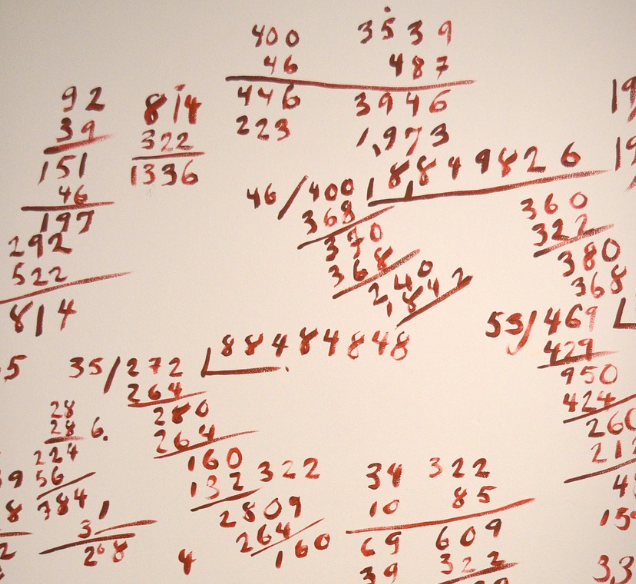 400
46
446
223
3539
487
3946
1,973
92
39
151
46
197
292
522
814
814
322
1336
46/400
368
370
368
240
1842
1,8849826
360
322
380
368
53/469
429
950
424
260
212
35/272
264
280
264
160
132
88484848
322
2809
264
160
28
28 6.
224
56
784
31
268
4
34
10
69
39
322
85
609
322